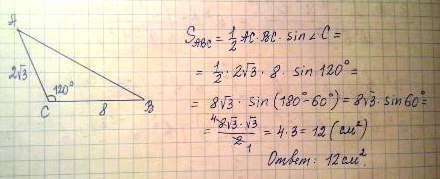 A
2√3
120°
C
8
B
S_ABC = 1/2 AC · BC · sin∠C =
= 1/2 · 2√3 · 8 · sin 120° =
= 8√3 · sin (180° - 60°) = 8√3 · sin 60° =
= ⁴8√3 · √3 / 2 ₁ = 4 · 3 = 12 (см²)
Ответ: 12 см².